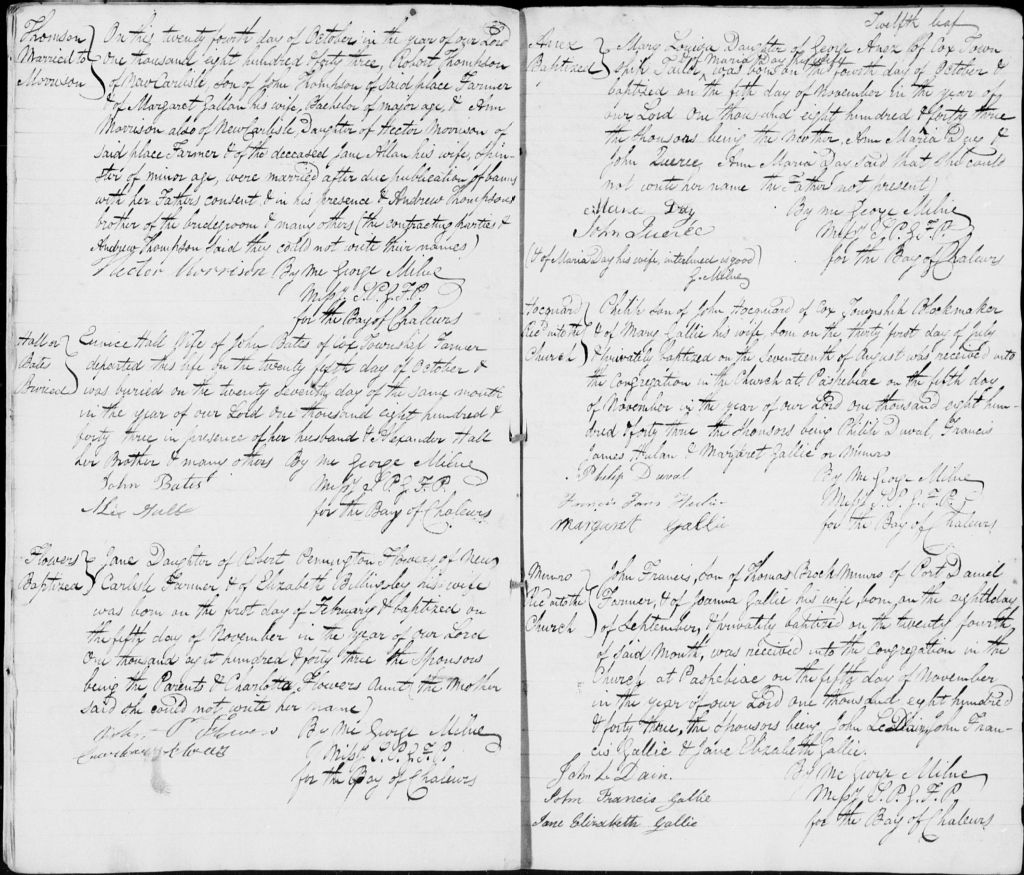 Thomson
Married to
Morrison
On this twenty fourth day of October in the year of our Lord
One thousand eight hundred forty three, Robert Thompson
of New Carlisle, son of John Thompson of said place Farmer
& of Margaret Gallan his wife, Bachelor of major age, & Ann
Morrison also of New Carlisle, Daughter of Hector Morrison of
said place Farmer & of the deceased Jane Allan his wife, spin-
ster of minor age, were married after due publication of banns
with her Fathers consent & in his presence & Andrew Thompson
brother of the bridegroom & many others (the contracting parties &
Andrew Thompson said they could not write their names)
Hector Morrison By Me George Milne
Missy S.P.G.F.P.
for the Bay of Chaleurs
Hall or
Bates
Burried
Eunice Hall Wife of John Bates of Cox Township Farmer
departed this life on the twenty fifth day of October &
was buried on the twenty seventh day of the same month
in the year of our Lord One thousand eight hundred &
forty three in presence of her husband & Alexander Hall
her Brother & many others By Me George Milne
John Bates Missy S.P.G.F.P.
Alex Hall for the Bay of Chaleurs
Flowers
Baptized
Jane Daughter of Robert Pennington Flowers of New
Carlisle Farmer, & of Elizabeth Billingsley his wife
was born on the first day of February & baptized on
the fifth day of November in the year of our Lord
One thousand eight hundred & forty three the Sponsors
being the Parents & Charlotte Flowers Aunt (the Mother
said she could not write her name)
Robert P Flowers By Me George Milne
Missy S.P.G.F.P.
for the Bay of Chaleurs
Twelfth leaf
Anex
Baptized
Mary Louisa Daughter of George Anex of Cox Town
& of Maria Day his wife
ship Tailor was born on the fourth day of October &
baptized on the fifth day of November in the year of
our Lord One thousand eight hundred & forty three
the sponsors being the Mother, Ann Maria Day &
John Querée (Ann Maria Day said that she could
not write her name the Father not present)
Maria Day By me George Milne
John Querée Missy S.P.G.F.P.
(& of Maria Day his wife, interlined is good) for the Bay of Chaleurs
G. Milne
Hocquard
Rec'd into the
Church
Philip son of John Hocquard of Cox Township Blockmaker
& of Mary Gallie his wife, born on the thirty first day of July
& privately baptized on the Seventeenth of August was received into
the Congregation in the Church at Pashebiac on the fifth day
of November in the year of our Lord one thousand eight hun-
dred & forty three the Sponsors being Philip Duval, Francis
James & Margaret Gallie or Munro
Philip Duval By Me George Milne
Missy S.P.G.F.P.
Margaret Gallie for the Bay of Chaleurs
Munro
Rec'd into the
Church
John Francis, son of Thomas Brock Munro of Port Daniel
Farmer, & of Joanna Gallie his wife, born, on the eighth day
of September, & privately baptized on the twenty fourth
of said Month, was received into the Congregation in the
Church at Pashebiac on the fifth day of November
in the year of our Lord one thousand eight hundred
& forty three, the sponsors being John Le Dain, John Fran-
cis Gallie & Jane Elizabeth Gallie.
John Le Dain. By Me George Milne
John Francis Gallie Missy S.P.G.F.P.
Jane Elizabeth Gallie for the Bay of Chaleurs